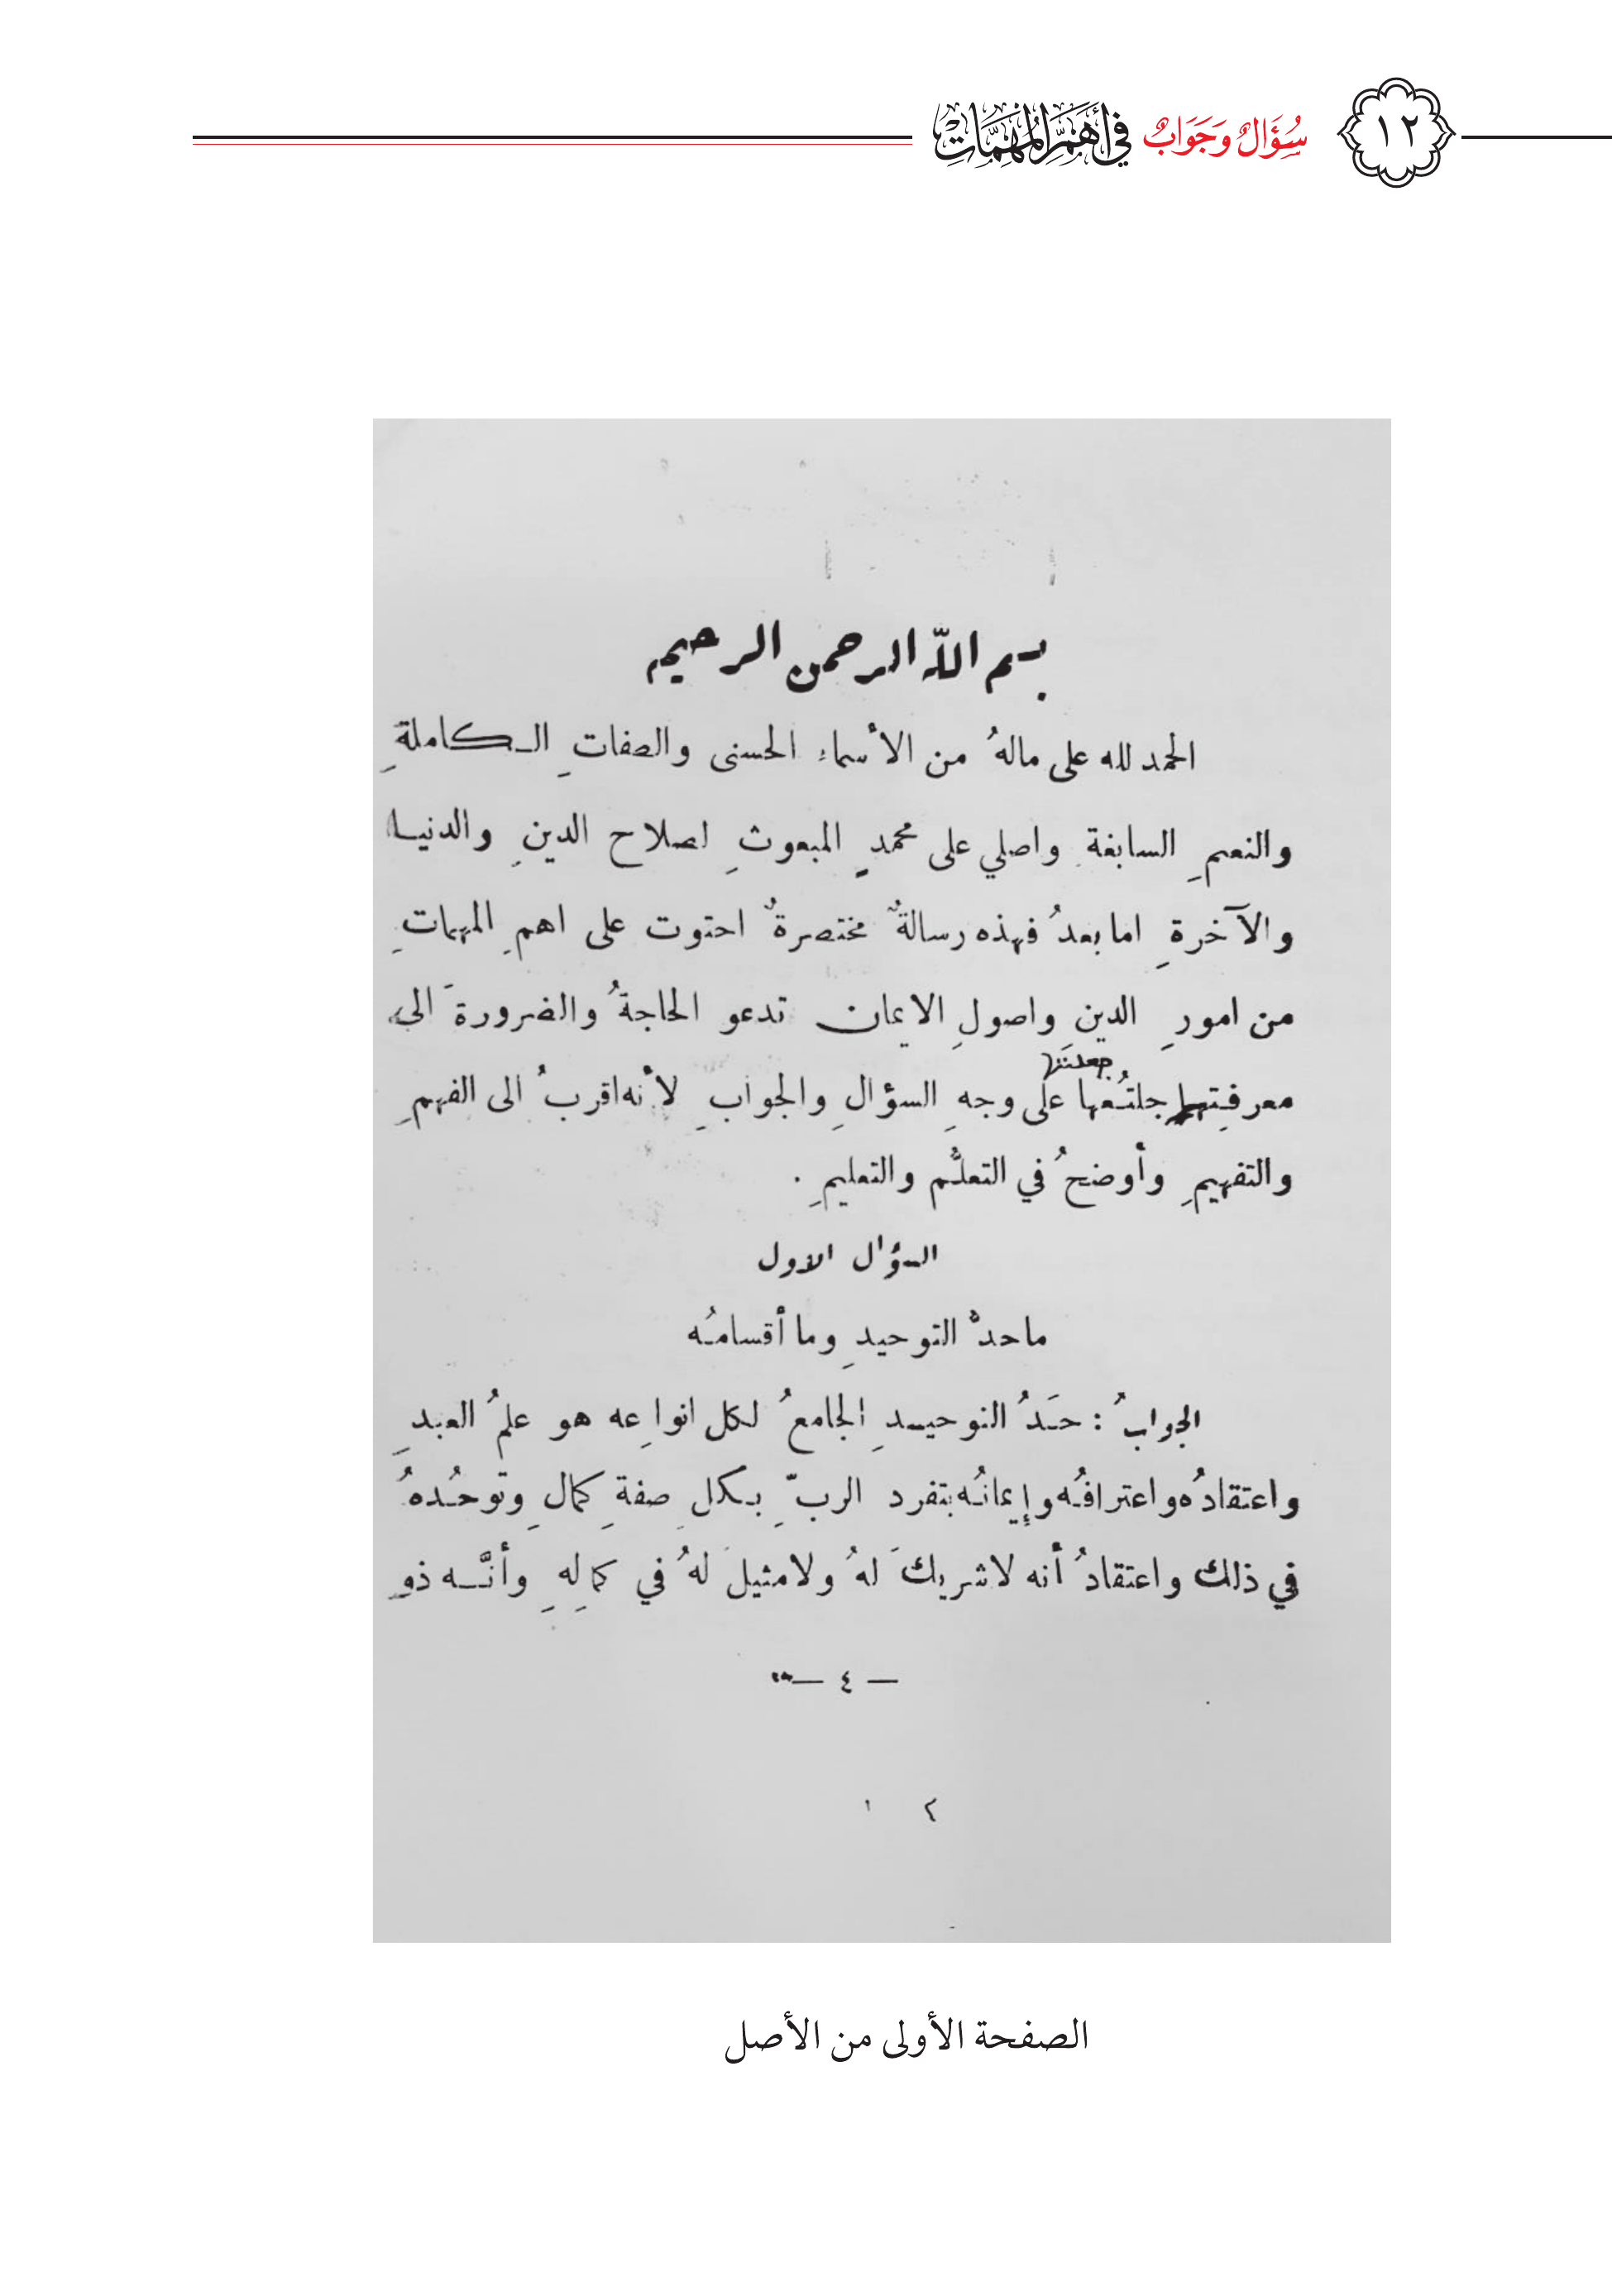 ١٢
سُؤَالٌ وَجَوَابٌ فِي أَهَمِّ المُهِمَّاتِ
بسم اللّه الرحمن الرحيم
الحمد لله على مالهُ من الأسماء الحسنى والصفاتِ الـكاملةِ
والنعمِ السابغةِ واصلي على محمدٍ المبعوثِ لصلاح الدينِ والدنيـا
والآخرةِ اما بعدُ فهذه رسالةٌ مختصرةٌ احتوت على اهمِ المهماتِ
من امورِ الدينِ واصولِ الايمان تدعو الحاجةُ والضرورةَ الى
جعلتَها
معرفتِها جلتُعها على وجهِ السؤالِ والجوابِ لأنه اقربُ الى الفهمِ
والتفهيمِ وأوضحُ في التعلُّم والتعليمِ .
السؤال الاول
ماحدُّ التوحيدِ وما أقسامُه
الجوابُ : حَدُ النوحيـدِ الجامعُ لكل انواعِه هو علمُ العبدِ
واعتقادُه واعترافُه وإيمانُه بتفرد الربّ بـكلِ صفةِ كمالِ وتوحُدهُ
في ذلك واعتقادُ أنه لاشريكَ لهُ ولامثيلَ لهُ في كمالِهِ وأنَّـه ذو
— ٤ —
٢ ١
الصفحة الأولى من الأصل